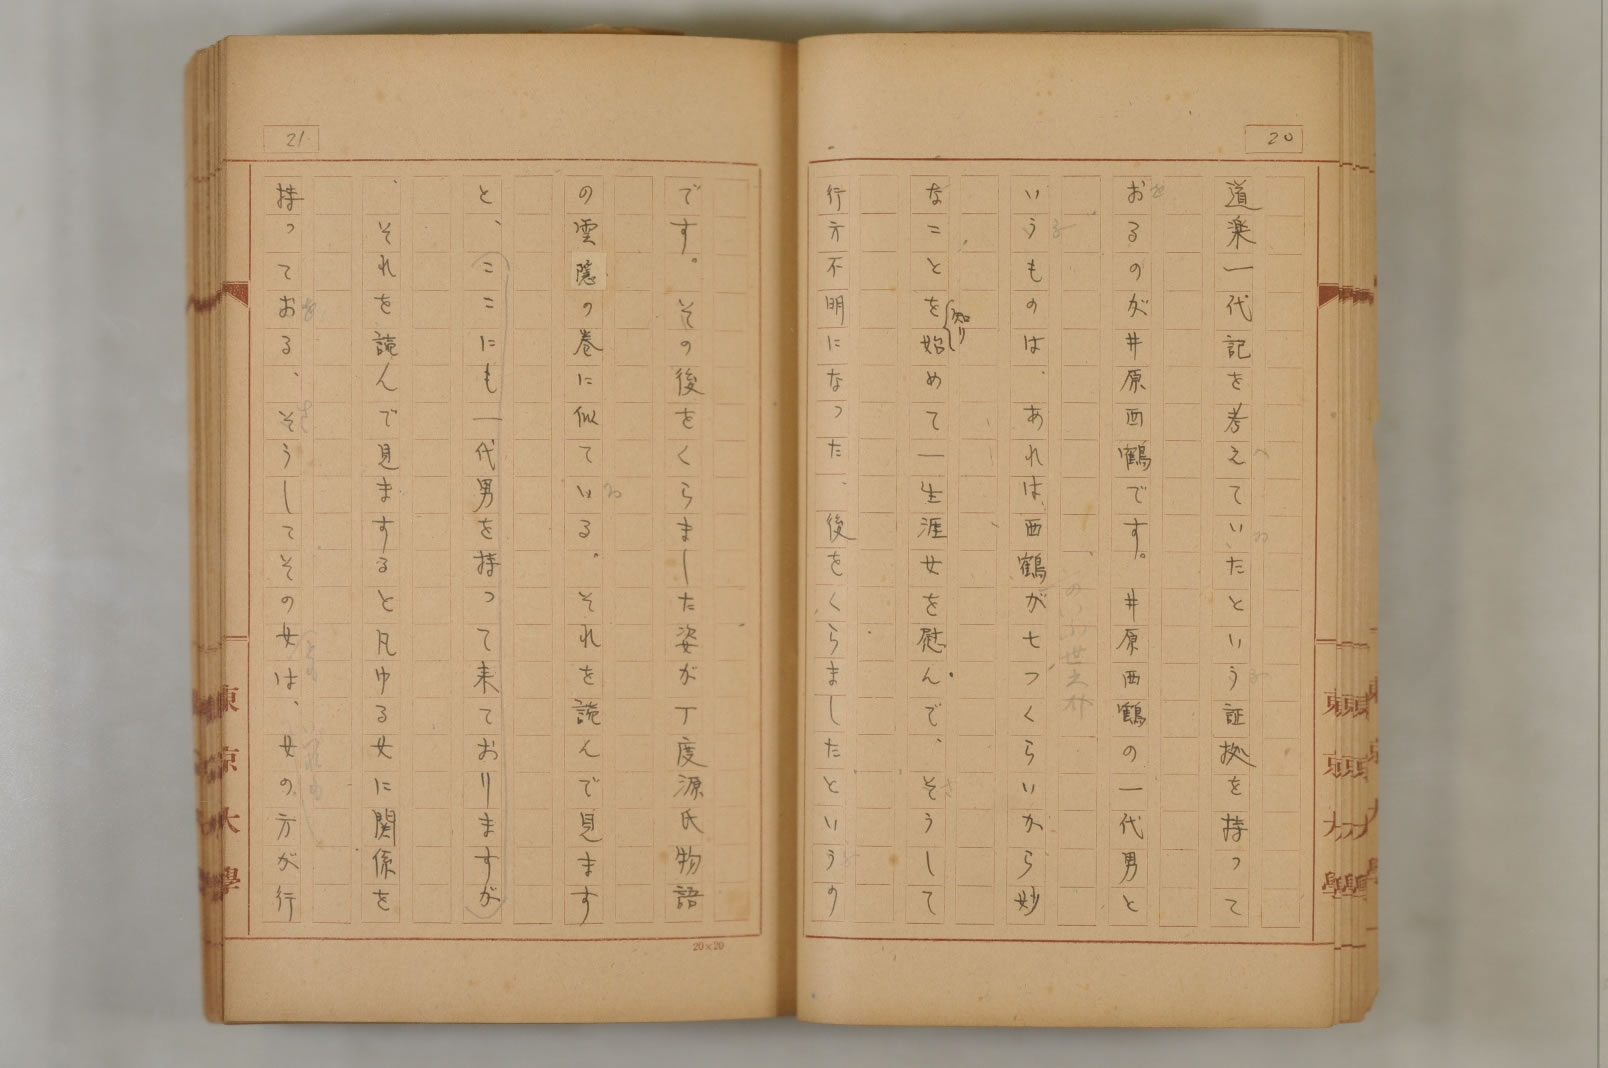 20
道楽一代記を考えていたという証拠を持って
おるのが井原西鶴です。井原西鶴の一代男と
いうものは、あれは西鶴が七つくらいから妙
なことを始めて一生涯女を慰んで、そうして
知り
行方不明になった、後をくらましたというの
21
です。その後をくらました姿が丁度源氏物語
の雲隠の巻に似ている。それを読んで見ます
と、ここにも一代男を持って来ておりますが
、それを読んで見ますると凡ゆる女に関係を
持っておる、そうしてその女は、女の方が行
20×20
東京大學